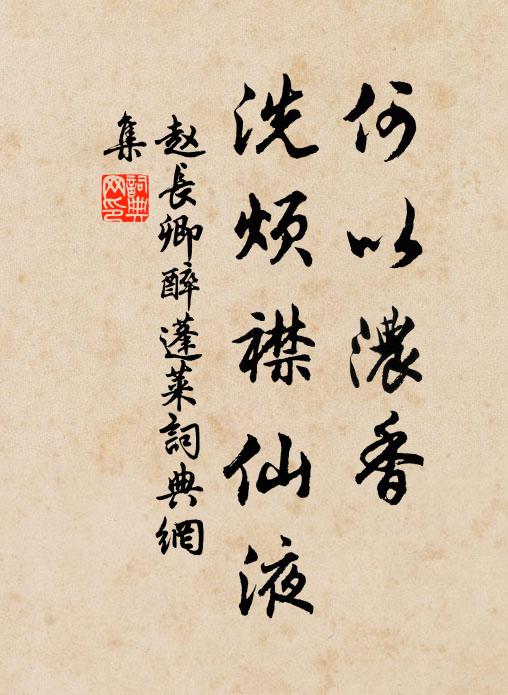 何以濃香
洗煩襟仙液
赵長卿醉蓬莱詞典網
集
詞典
网印